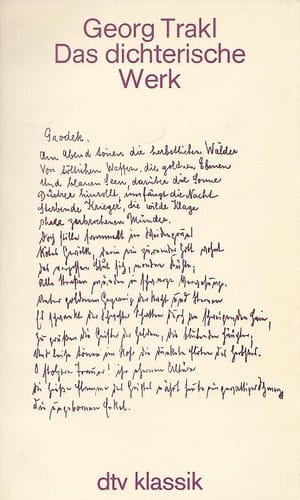 Georg Trakl
Das dichterische
Werk
Grodek.
Am Abend tönen die herbstlichen Wälder
Von tödlichen Waffen, die goldnen Ebenen
Und blauen Seen, darüber die Sonne
Düstrer hinrollt, umfängt die Nacht
Sterbende Krieger, die wilde Klage
Ihrer zerbrochenen Münder.
Doch stille sammelt im Weidengrund
Rotes Gewölk, darin ein zürnender Gott wohnt
Das vergossne Blut sich, mondne Kühle;
Alle Straßen münden in schwarze Verwesung.
Unter goldnem Gezweig der Nacht und Sternen
Es schwankt der Schwester Schatten durch den schweigenden Hain,
Zu grüßen die Geister der Helden, die blutenden Häupter;
Und leise tönen im Rohr die dunkeln Flöten des Herbstes.
O stolzere Trauer! ihr ehernen Altäre
Die heiße Flamme des Geistes nährt heute ein gewaltiger Schmerz,
Die ungebornen Enkel.
dtv klassik